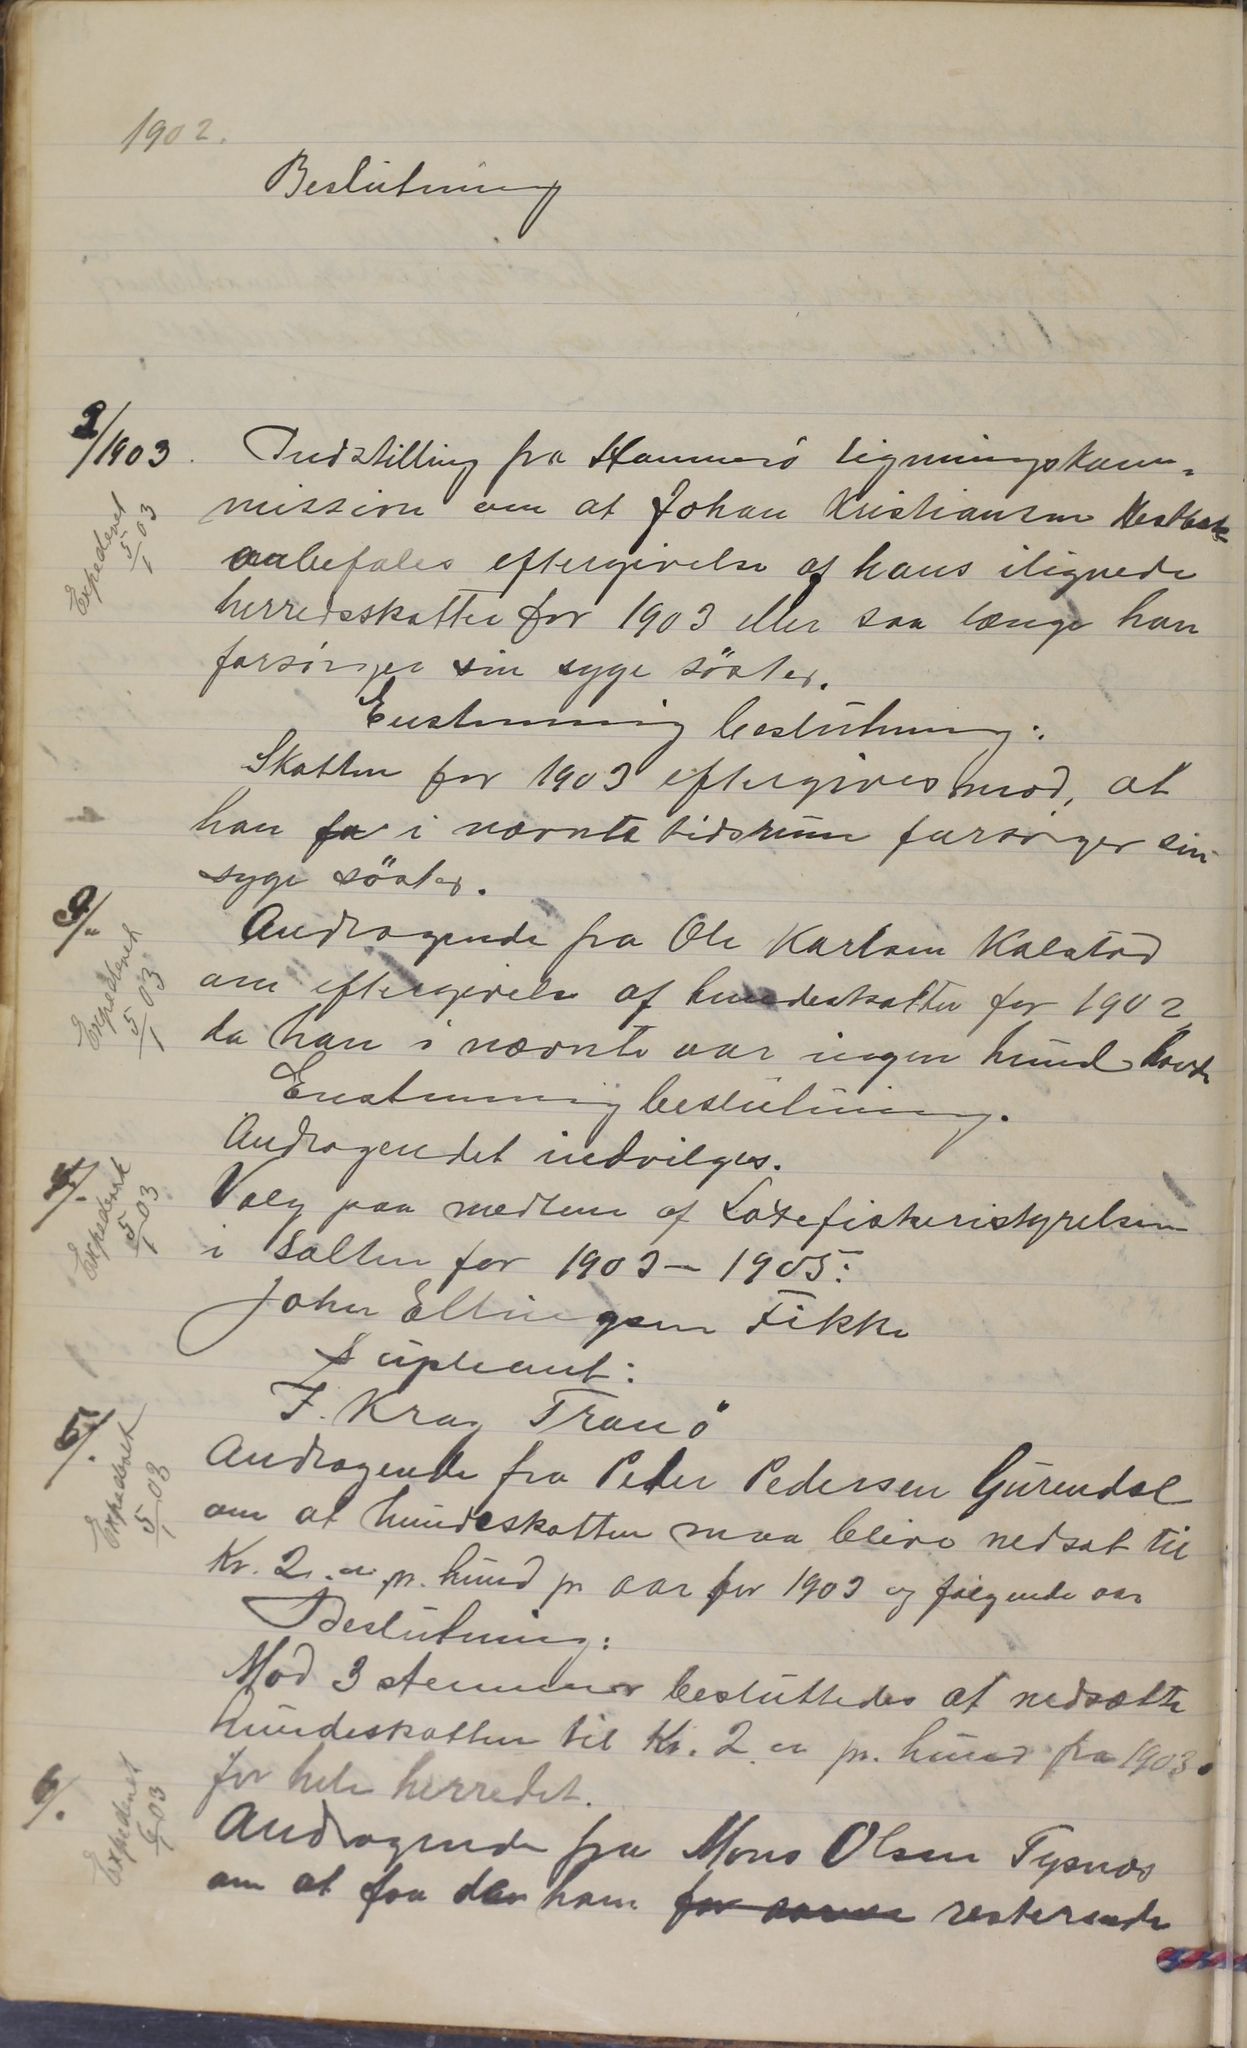 1902.
Beslutning
2/1903. Indstilling fra Hammerö ligningskom-
Expederet 5/1 03
mission om at Johan Kristiansen
anbefales eftergivelse af hans ilignede
herredsskatter for 1903 eller saa længe han
forsörger sin syge söster.
Enstemmig beslutning:
Skatten for 1903 eftergives mod, at
han fo i nævnte tidsrum forsörger sin
syge söster.
3/- Andragende fra Ole Karlsen Kalstad
Expederet 5/1 03
om eftergivelse af hundeskatten for 1902
da han i nævnte aar ingen hund havde
Enstemmig beslutning.
Andragendet indvilges.
4/. Valg paa medlem af Laxefiskeristyrelsen
Expederet 5/1 03
i Salten for 1903-1905:
Johan Ellingsen Fikke
Supleant:
F. Krag Tranö
5/. Andragende fra Peder Pedersen Gurendal
Expederet 5/1 03
om at hundeskatten maa blive nedsat til
Kr. 2.00 pr. hund pr aar for 1903 og fölgende aar
Beslutning:
Mod 3 stemmer besluttedes at nedsætte
hundeskatten til Kr. 2.00 pr. hund fra 1903.
for hele herredet.
6/. Andragende fra Mons Olsen Tysnes
Expederet 6/1 03
om at faa den ham for resterende